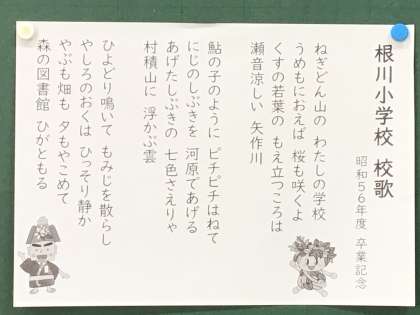 根川小学校 校歌
昭和56年度 卒業記念
ねぎどん山の わたしの学校
うめもにおえば 桜も咲くよ
くすの若葉の もえ立つころは
瀬音涼しい 矢作川
鮎の子のように ピチピチはねて
にじのしぶきを 河原であげる
あげたしぶきの 七色さえりゃ
村積山に 浮かぶ雲
ひよどり鳴いて もみじを散らし
やしろのおくは ひっそり静か
やぶも畑も 夕もやこめて
森の図書館 ひがともる